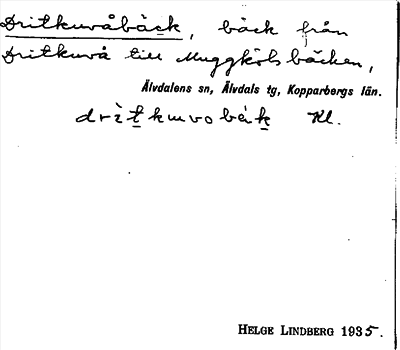 Dritkuvåbäck, bäck från
Dritkuvå till Muggkölsbäcken,
Älvdalens sn, Älvdals tg, Kopparbergs län.
drìtkuvobäk Kl.
HELGE LINDBERG 1935.